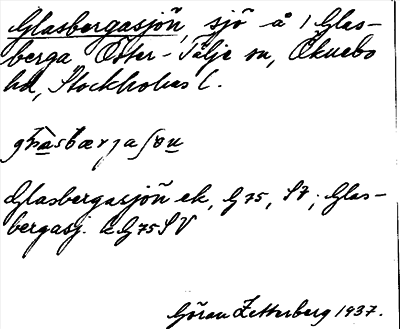 Glasbergasjöñ, sjö å 1 Glas-
berga Öster-Tälje sn, Öknebo
hd, Stockholms l.
Glasbergasjöñ ek, G 75, S7; Glas-
bergasj. LG75SV
Göran Zetterberg 1937.